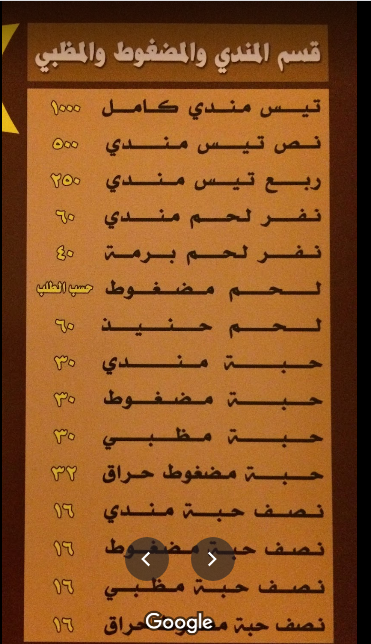 قسم المندي والمضغوط والمظبي
تيس مندي كامل ١٠٠٠
نص تيس مندي ٥٠٠
ربع تيس مندي ٢٥٠
نفر لحم مندي ٦٠
نفر لحم برمة ٤٠
لحم مضغوط حسب الطلب
لحم حنيذ ٦٠
حبة مندي ٣٠
حبة مضغوط ٣٠
حبة مظبي ٣٠
حبة مضغوط حراق ٣٢
نصف حبة مندي ١٦
نصف حبة مضغوط ١٦
نصف حبة مظبي ١٦
نصف حبة حراق ١٦
Google